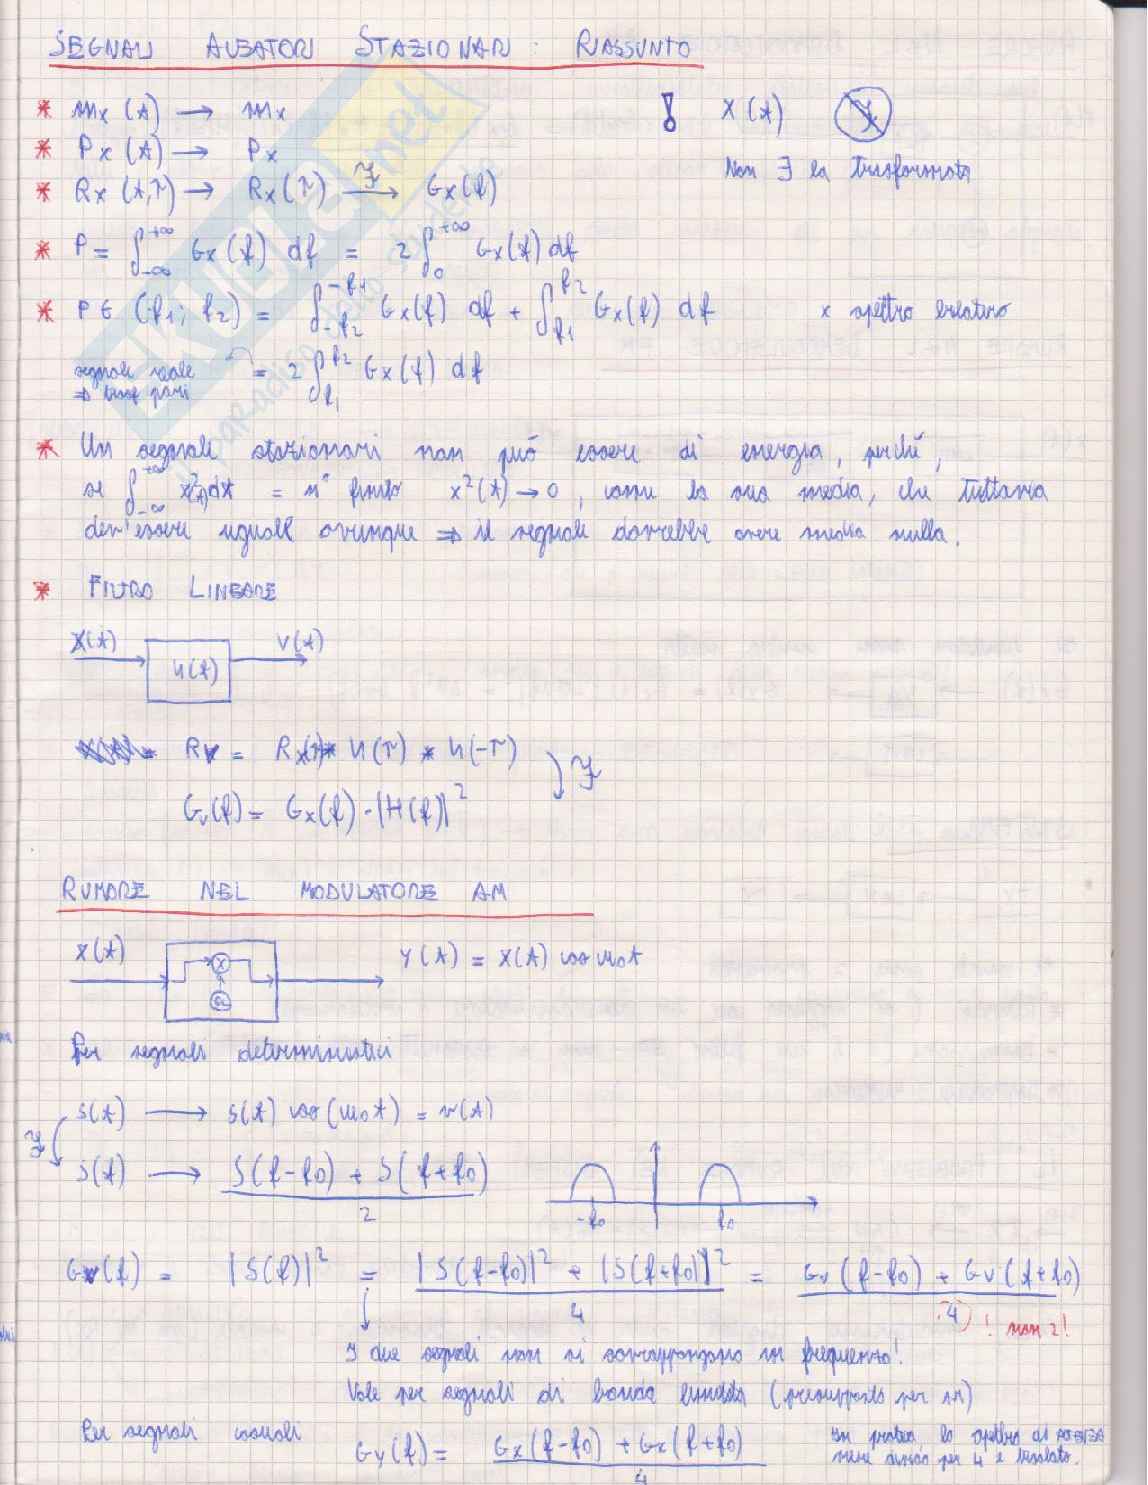 SEGNALI ALEATORI STAZIONARI : RIASSUNTO
* mx (t) → mx
* Px (t) → Px
* Rx (t,τ) → Rx(τ) —ℱ→ Gx(f)
! X(t) ℱ
Non ∃ la trasformata
* P = ∫_{-∞}^{+∞} Gx(f) df = 2∫_0^{+∞} Gx(f) df
* P ∈ (f1; f2) = ∫_{-f2}^{-f1} Gx(f) df + ∫_{f1}^{f2} Gx(f) df x spettro bilatero
segnale reale = 2∫_{f1}^{f2} Gx(f) df
⇒ trasf pari
* Un segnale stazionari non può essere di energia, perché,
se ∫_{-∞}^{+∞} x²(t)dt = n° finito x²(t) → 0, come la sua media, che tuttavia
dev'essere uguale ovunque ⇒ il segnale dovrebbe avere media nulla.
* FILTRO LINEARE
X(t) h(t) V(t)
Rv = Rx(τ) * h(τ) * h(-τ) ℱ
Gv(f) = Gx(f) · |H(f)|²
RUMORE NEL MODULATORE AM
X(t) x OL Y(t) = X(t) cos ω0t
Per segnali deterministici
s(t) → s(t) cos(ω0t) = v(t)
ℱ
S(f) → S(f-f0) + S(f+f0) / 2
-f0 f0
Gv(f) = |S(f)|² = |S(f-f0)|² + |S(f+f0)|² / 4 = Gv(f-f0) + Gv(f+f0) / 4 ! non 2!
I due segnali non si sovrappongono in frequenza!
Vale per segnali di banda limitata (presupposto per)
Per segnali casuali Gy(f) = Gx(f-f0) + Gx(f+f0) / 4
In pratica lo spettro di POTENZA
viene diviso per 4 e traslato.
ekuele.net
il paradiso dello studente